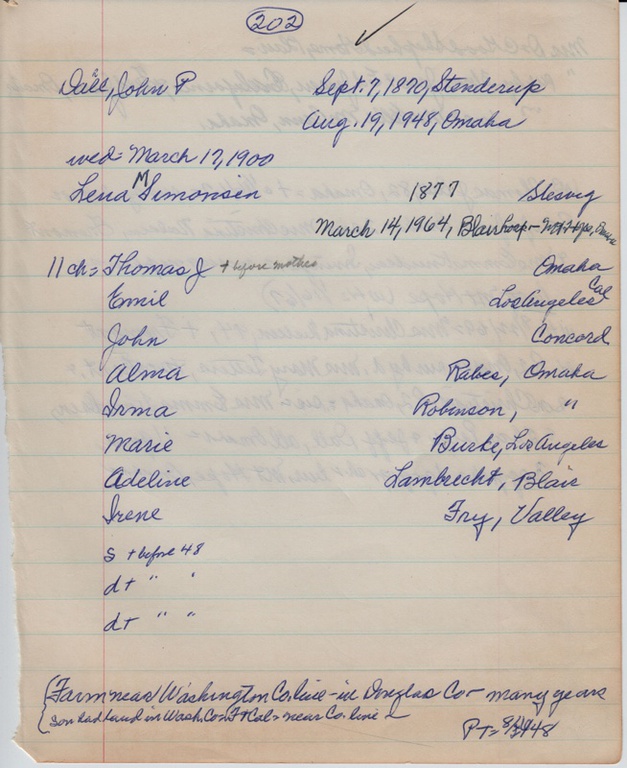 202
Dall, John P Sept. 7, 1870, Stenderup
Aug. 19, 1948, Omaha
wed- March 17, 1900
Lena M Simonsen 1877 Slesvig
March 14, 1964, Blair hosp -
11 ch = Thomas J + before mother Omaha
Emil Los Angeles Cal
John Concord
Alma Rabes, Omaha
Irma Robinson, "
Marie Burke, Los Angeles
Adeline Lambrecht, Blair
Irene Fry, Valley
s + before 48
d + " "
d + " "
Farm near Washington Co. line - in Douglas Co - many years
Son had land in Wash. Co = Ft Cal = near Co. line
PT =